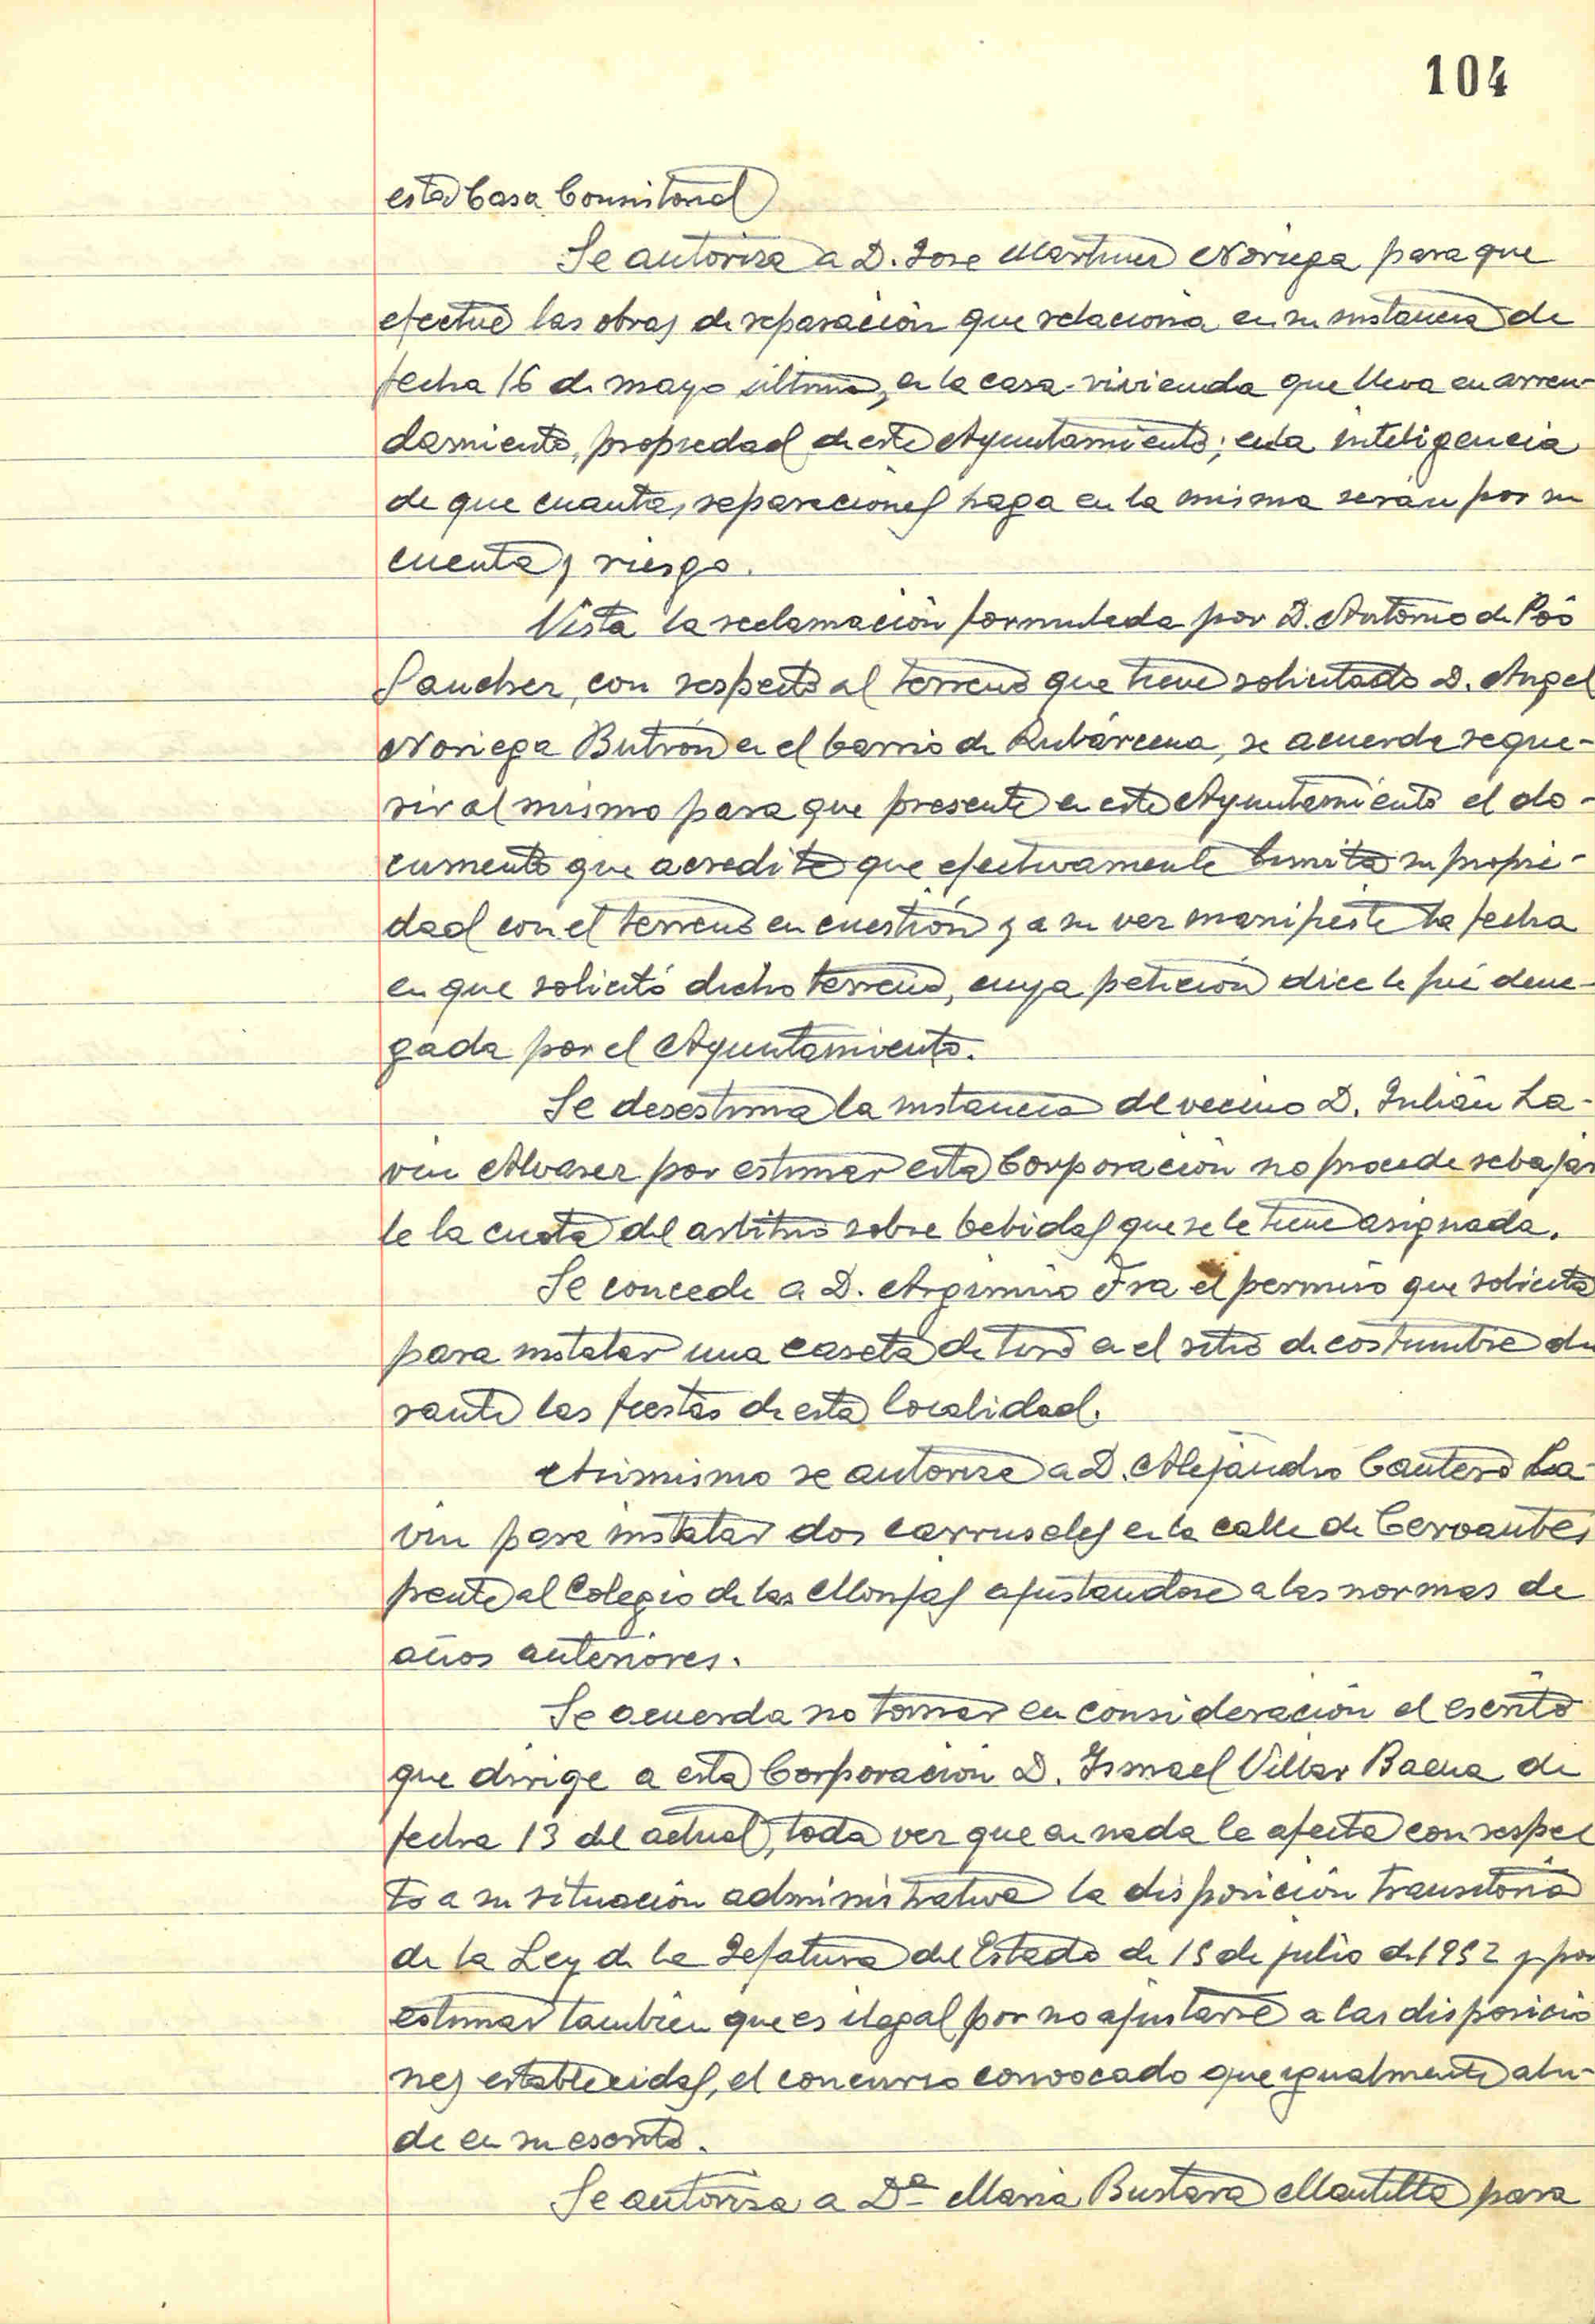 104
esta Casa Consistorial
Se autoriza a D. Jose Martinez Noriega para que
efectue las obras de reparación que relaciona en su instancia de
fecha 16 de mayo último, en la casa-vivienda que lleva en arren-
damiento, propiedad de este Ayuntamiento; en la inteligencia
de que cuantas reparaciones haga en la misma serán por su
cuenta y riesgo.
Vista la reclamación formulada por D. Antonio de Poó
Sanchez, con respecto al terreno que tiene solicitado D. Angel
Noriega Butrón en el barrio de Rubárcena, se acuerda reque-
rir al mismo para que presente en este Ayuntamiento el do-
cumento que acredite que efectivamente limita su propie-
dad con el terreno en cuestión y a su vez manifieste la fecha
en que solicitó dicho terreno, cuya petición dice le fué dene-
gada por el Ayuntamiento.
Se desestima la instancia del vecino D. Julián La-
vin Alvarez por estimar esta Corporación no procede rebajar
le la cuota del arbitrio sobre bebidas que se le tiene asignada.
Se concede a D. Argimiro Fra el permiso que solicita
para instalar una caseta de tiro en el sitio de costumbre du
rante las fiestas de esta localidad.
Asimismo se autoriza a D. Alejandro Cantero La-
vin para instalar dos carruseles en la calle de Cervantes
frente al Colegio de las Monjas ajustandose a las normas de
años anteriores.
Se acuerda no tomar en consideración el escrito
que dirige a esta Corporación D. Ismael Villar Baena de
fecha 13 del actual, toda vez que en nada le afecta con respec
to a su situación administrativa la disposición transitoria
de la Ley de la Jefatura del Estado de 15 de julio de 1952 y por
estimar tambien que es ilegal por no ajustarse a las disposicio
nes establecidas, el concurso convocado que igualmente alu-
de en su escrito.
Se autoriza a Dª Maria Bustara Mantilla para